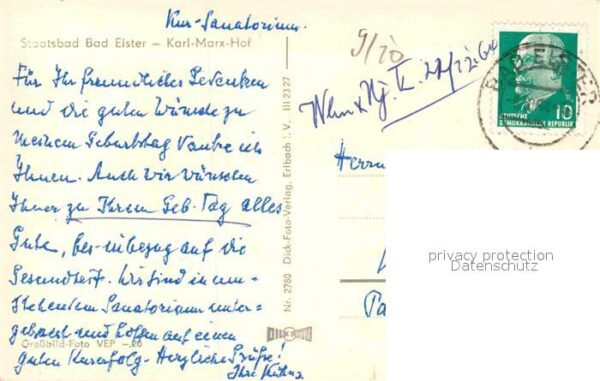 Kur-Sanatorium.
Staatsbad Bad Elster – Karl-Marx-Hof
Für Ihr freundliches Gedenken
und die guten Wünsche zu
meinem Geburtstag danke ich
Ihnen. Auch wir wünschen
Ihnen zu Ihrem Geb. Tag alles
Gute, bes. in bezug auf die
Gesundheit. Wir sind in um-
stehendem Sanatorium unter-
gebracht und hoffen auf einen
guten Kurerfolg. Herzliche Grüße!
Ihre
Großbild-Foto VEP –,20
Nr. 2780 Dick-Foto-Verlag, Erlbach i. V. III 23 27
DICK FOTO
9/10
BAD ELSTER
10
DEUTSCHE
DEMOKRATISCHE REPUBLIK
Herrn
privacy protection
Datenschutz